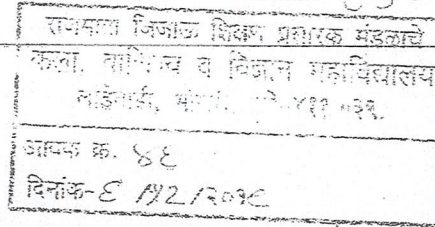 राजमाता जिजाऊ शिक्षण प्रसारक मंडळाचे
कला, वाणिज्य व विज्ञान महाविद्यालय
४११ ०३९.
आवक क्र. ४६
दिनांक-६ /१२/२०१९